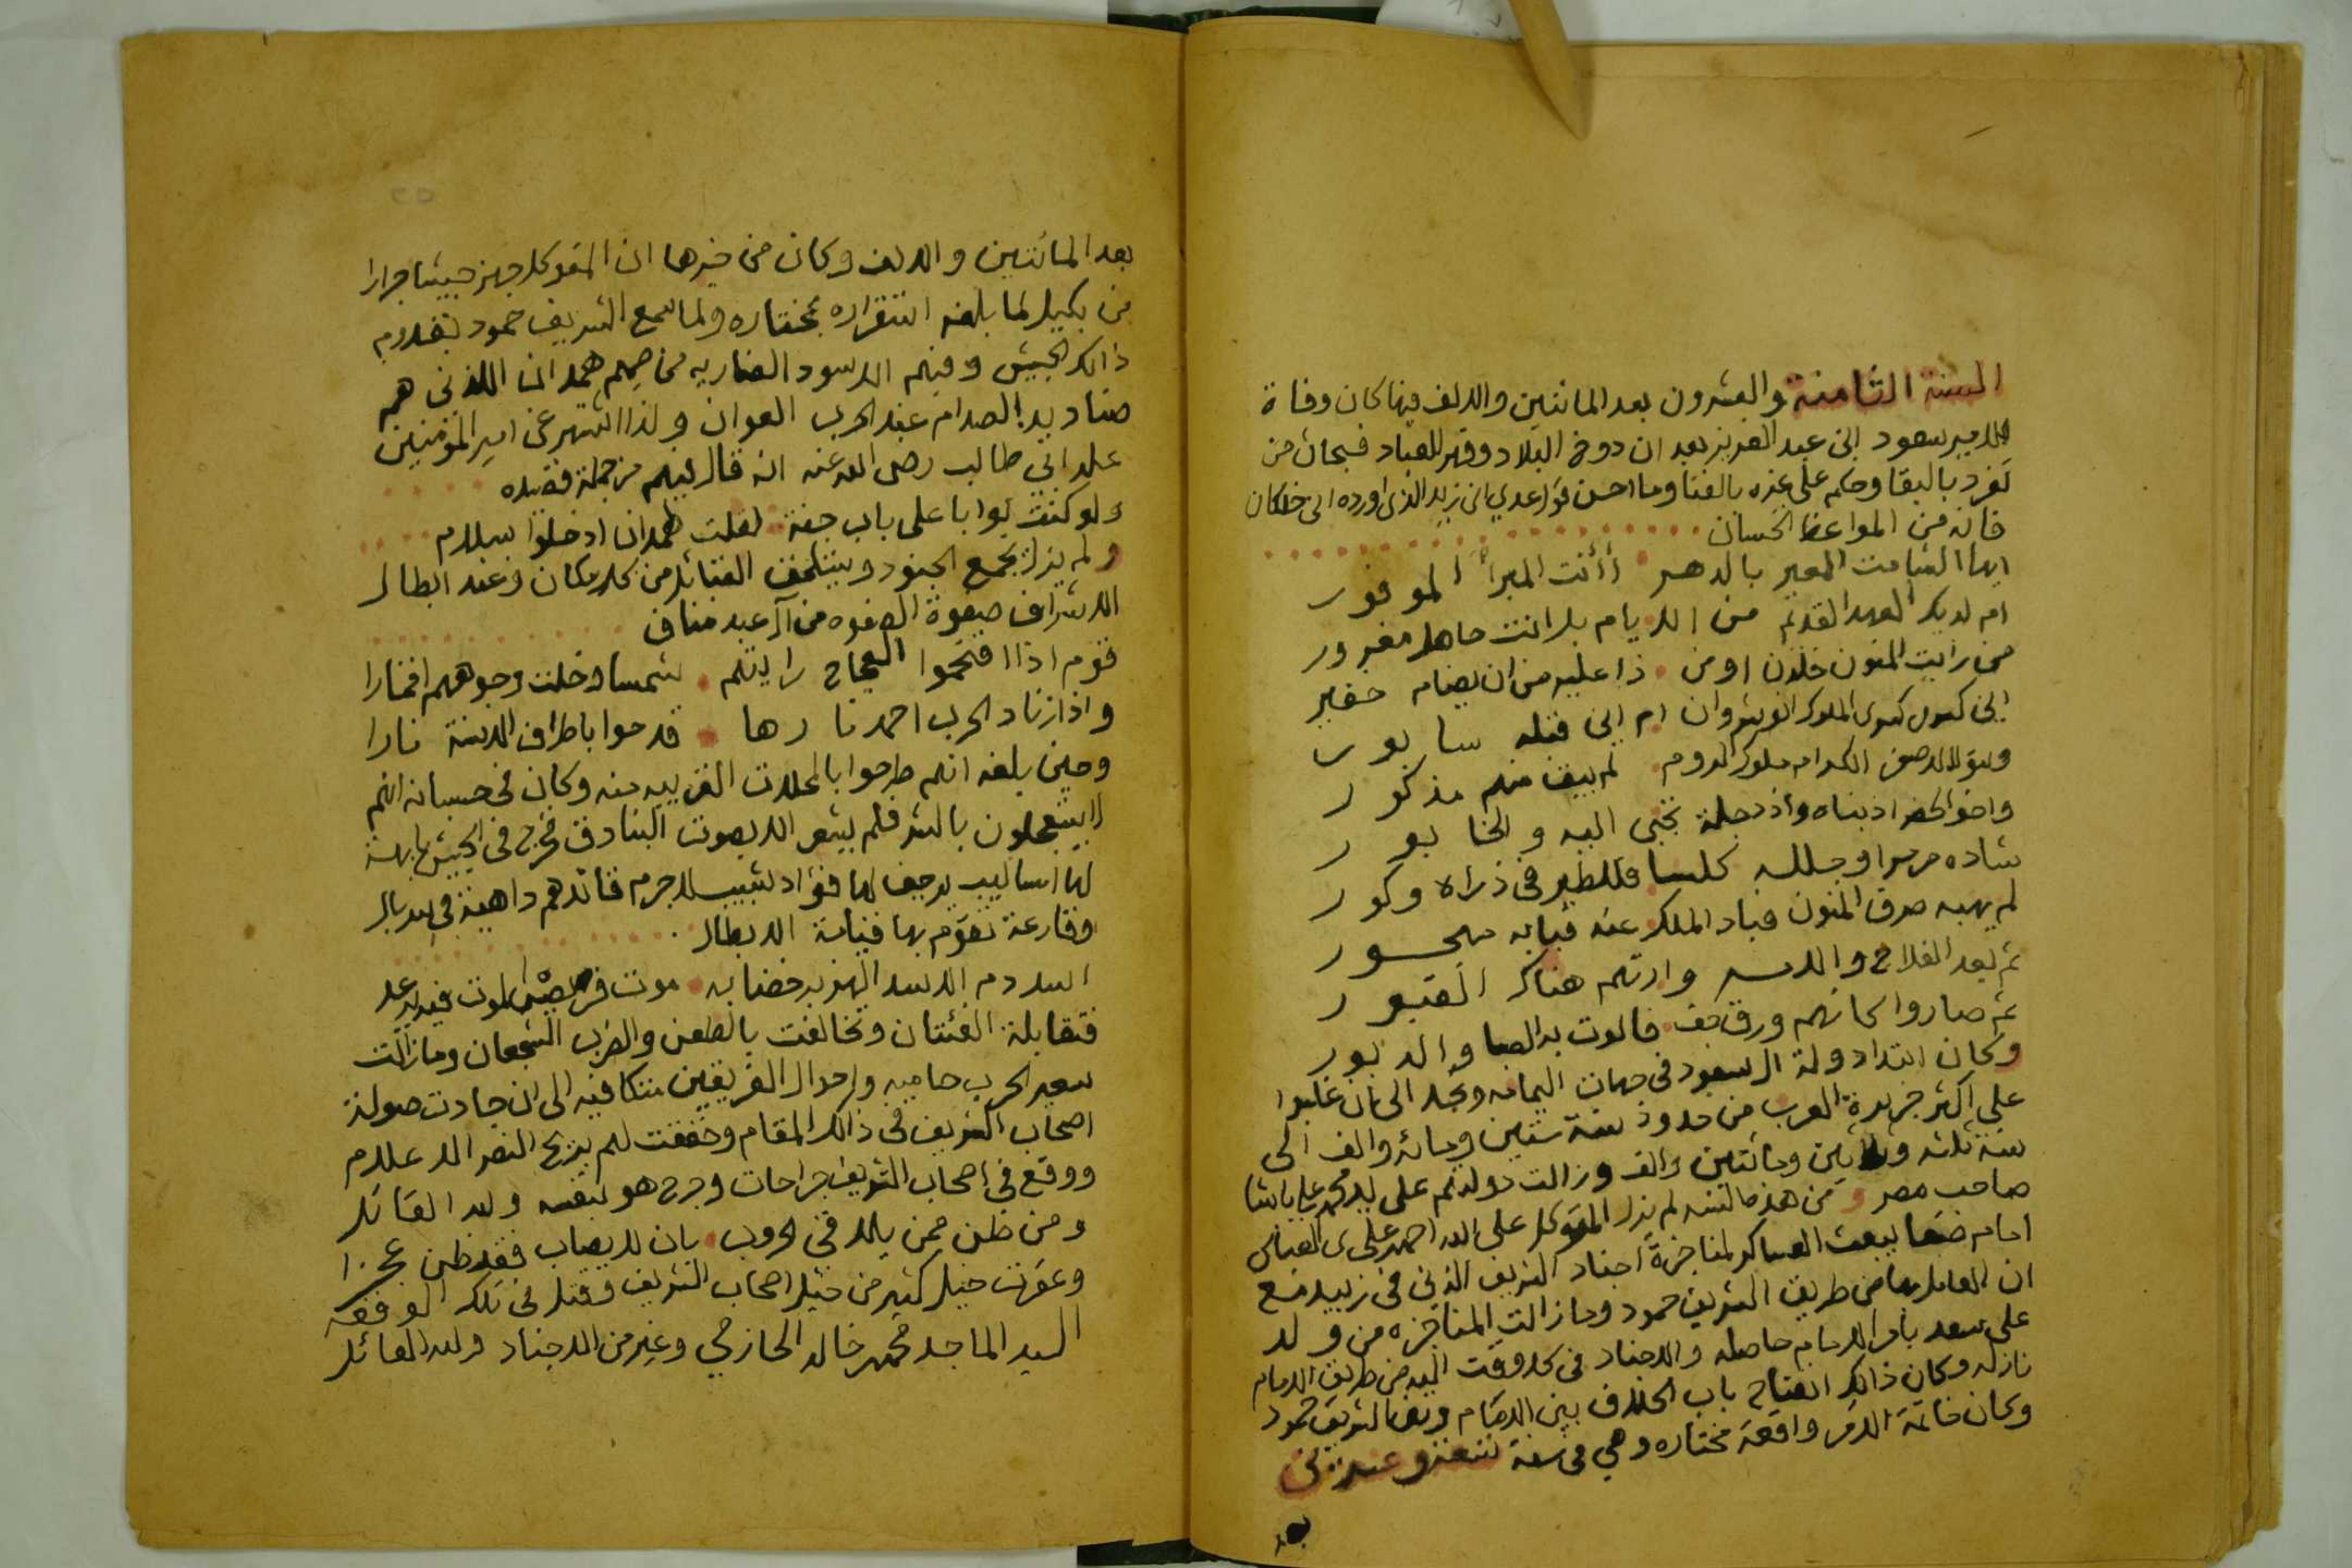 السنة الثامنة والعشرون بعد المائتين والالف فيها كان وفاة
الامير سعود ابن عبد العزيز بعد ان دوخ البلاد وقهر العباد فسبحان من
تفرد بالبقا وحكم على غيره بالفنا وما احسن قول عدي ابن زيد الذي اورده ابن خلكان
فانه من المواعظ الحسان
ايها الشامت المعير بالدهر أأنت المبرأ الموفور
ام لديك العهد القديم من الايام بل انت جاهل مغرور
من رايت المنون خلدن او من ذا عليه من ان يضام خفير
اين كسرى كسرى الملوك انوشروان ام اين قبله سابور
وبنو الاصفر الكرام ملوك الروم لم يبق منهم مذكور
واخو الحضر اذ بناه واذ دجلة تجبى اليه والخابور
شاده مرمرا وجلله كلسا فللطير في ذراه وكور
لم يهبه صرف المنون فباد الملك عنه فبابه مهجور
ثم بعد الفلاح والا وارتهم هناك القبور
ثم صاروا كانهم ورق جف فالوت به الصبا والدبور
وكان ابتدا دولة ال سعود في جهات اليمامه ونجد الى ان غلبوا
على اكثر جزيرة العرب من حدود سنة ستين ومائه والف الى
سنة ثلثه وثلاثين ومائتين والف وزالت دولتهم على يد محمد علي باشا
صاحب مصر و من هذه السنه لم يزل المتوكل على الله احمد علي العباس
امام صنعا يبعث العساكر لمناجزة اجناد الشريف الذين في زبيد مع
ان العامل بها من طريق الشريف حمود وما زالت المناجزه من ولد
على سعد بامر الامام حاصله والاجناد في كل وقت اليه من طريق الامام
نازله وكان ذالك افتتاح باب الخلاف بين الامام وبين الشريف حمود
وكان خاتمة الامر واقعة مختاره وهي في سنة تسعه وعشرين
بعد
بعد المائتين والالف وكان من خبرها ان المتوكل جهز جيشا جرارا
من بكيل لما بلغه استقراره بمختاره ولما سمع الشريف حمود بقدوم
ذالك الجيش وفيهم الاسود الضاريه من صميم همدان الذين هم
صناديد الصدام عند الحرب العوان ولذا اشتهر عن امير المؤمنين
علي ابن ابي طالب رضى الله عنه انه قال فيهم من جملة قصيده
ولو كنت بوابا على باب جنة لقلت لهمدان ادخلوا بسلام
ولم يزل يجمع الجنود ويستلحق القبائل من كل مكان وعنده ابطال
الاشراف صفوة الصفوه من آل عبد مناف
قوم اذا اقتحموا العجاج رايتهم شمسا وخلت وجوههم اقمارا
واذا زناد الحرب اخمد نارها قدحوا باطراف الاسنة نارا
وحين بلغه انهم طرحوا بالمحلات القريبه منه وكان في حسبانه انهم
لا يتعجلون بالشر فلم يشعر الا بصوت البنادق فخرج في الجيش بابهة
لها اساليب يرجف لها فؤاد شبيب لا جرم قائدهم داهية في سربال
وقارعة تقوم بها قيامة الابطال
اسد دم الاسد الهزبر خضابه موت فريص الموت فيه يرعد
فتقابلة الفئتان وتخالفت بالطعن والضرب الشجعان وما زالت
سعير الحرب حاميه واحوال الفريقين متكافيه الى ان جادت صولة
اصحاب الشريف في ذالك المقام وخفقت لهم بريح النصر الاعلام
ووقع في اصحاب الشريف جراحات وجرح هو بنفسه ولله القائل
ومن ظن ممن يلاقي الحروب بان لا يصاب فقد ظن عجزا
وعقرت خيل كثير من خيل اصحاب الشريف وقتل في تلك الوقعه
السيد الماجد محمد خالد الحازمي وغير من الاجناد ولله القائل